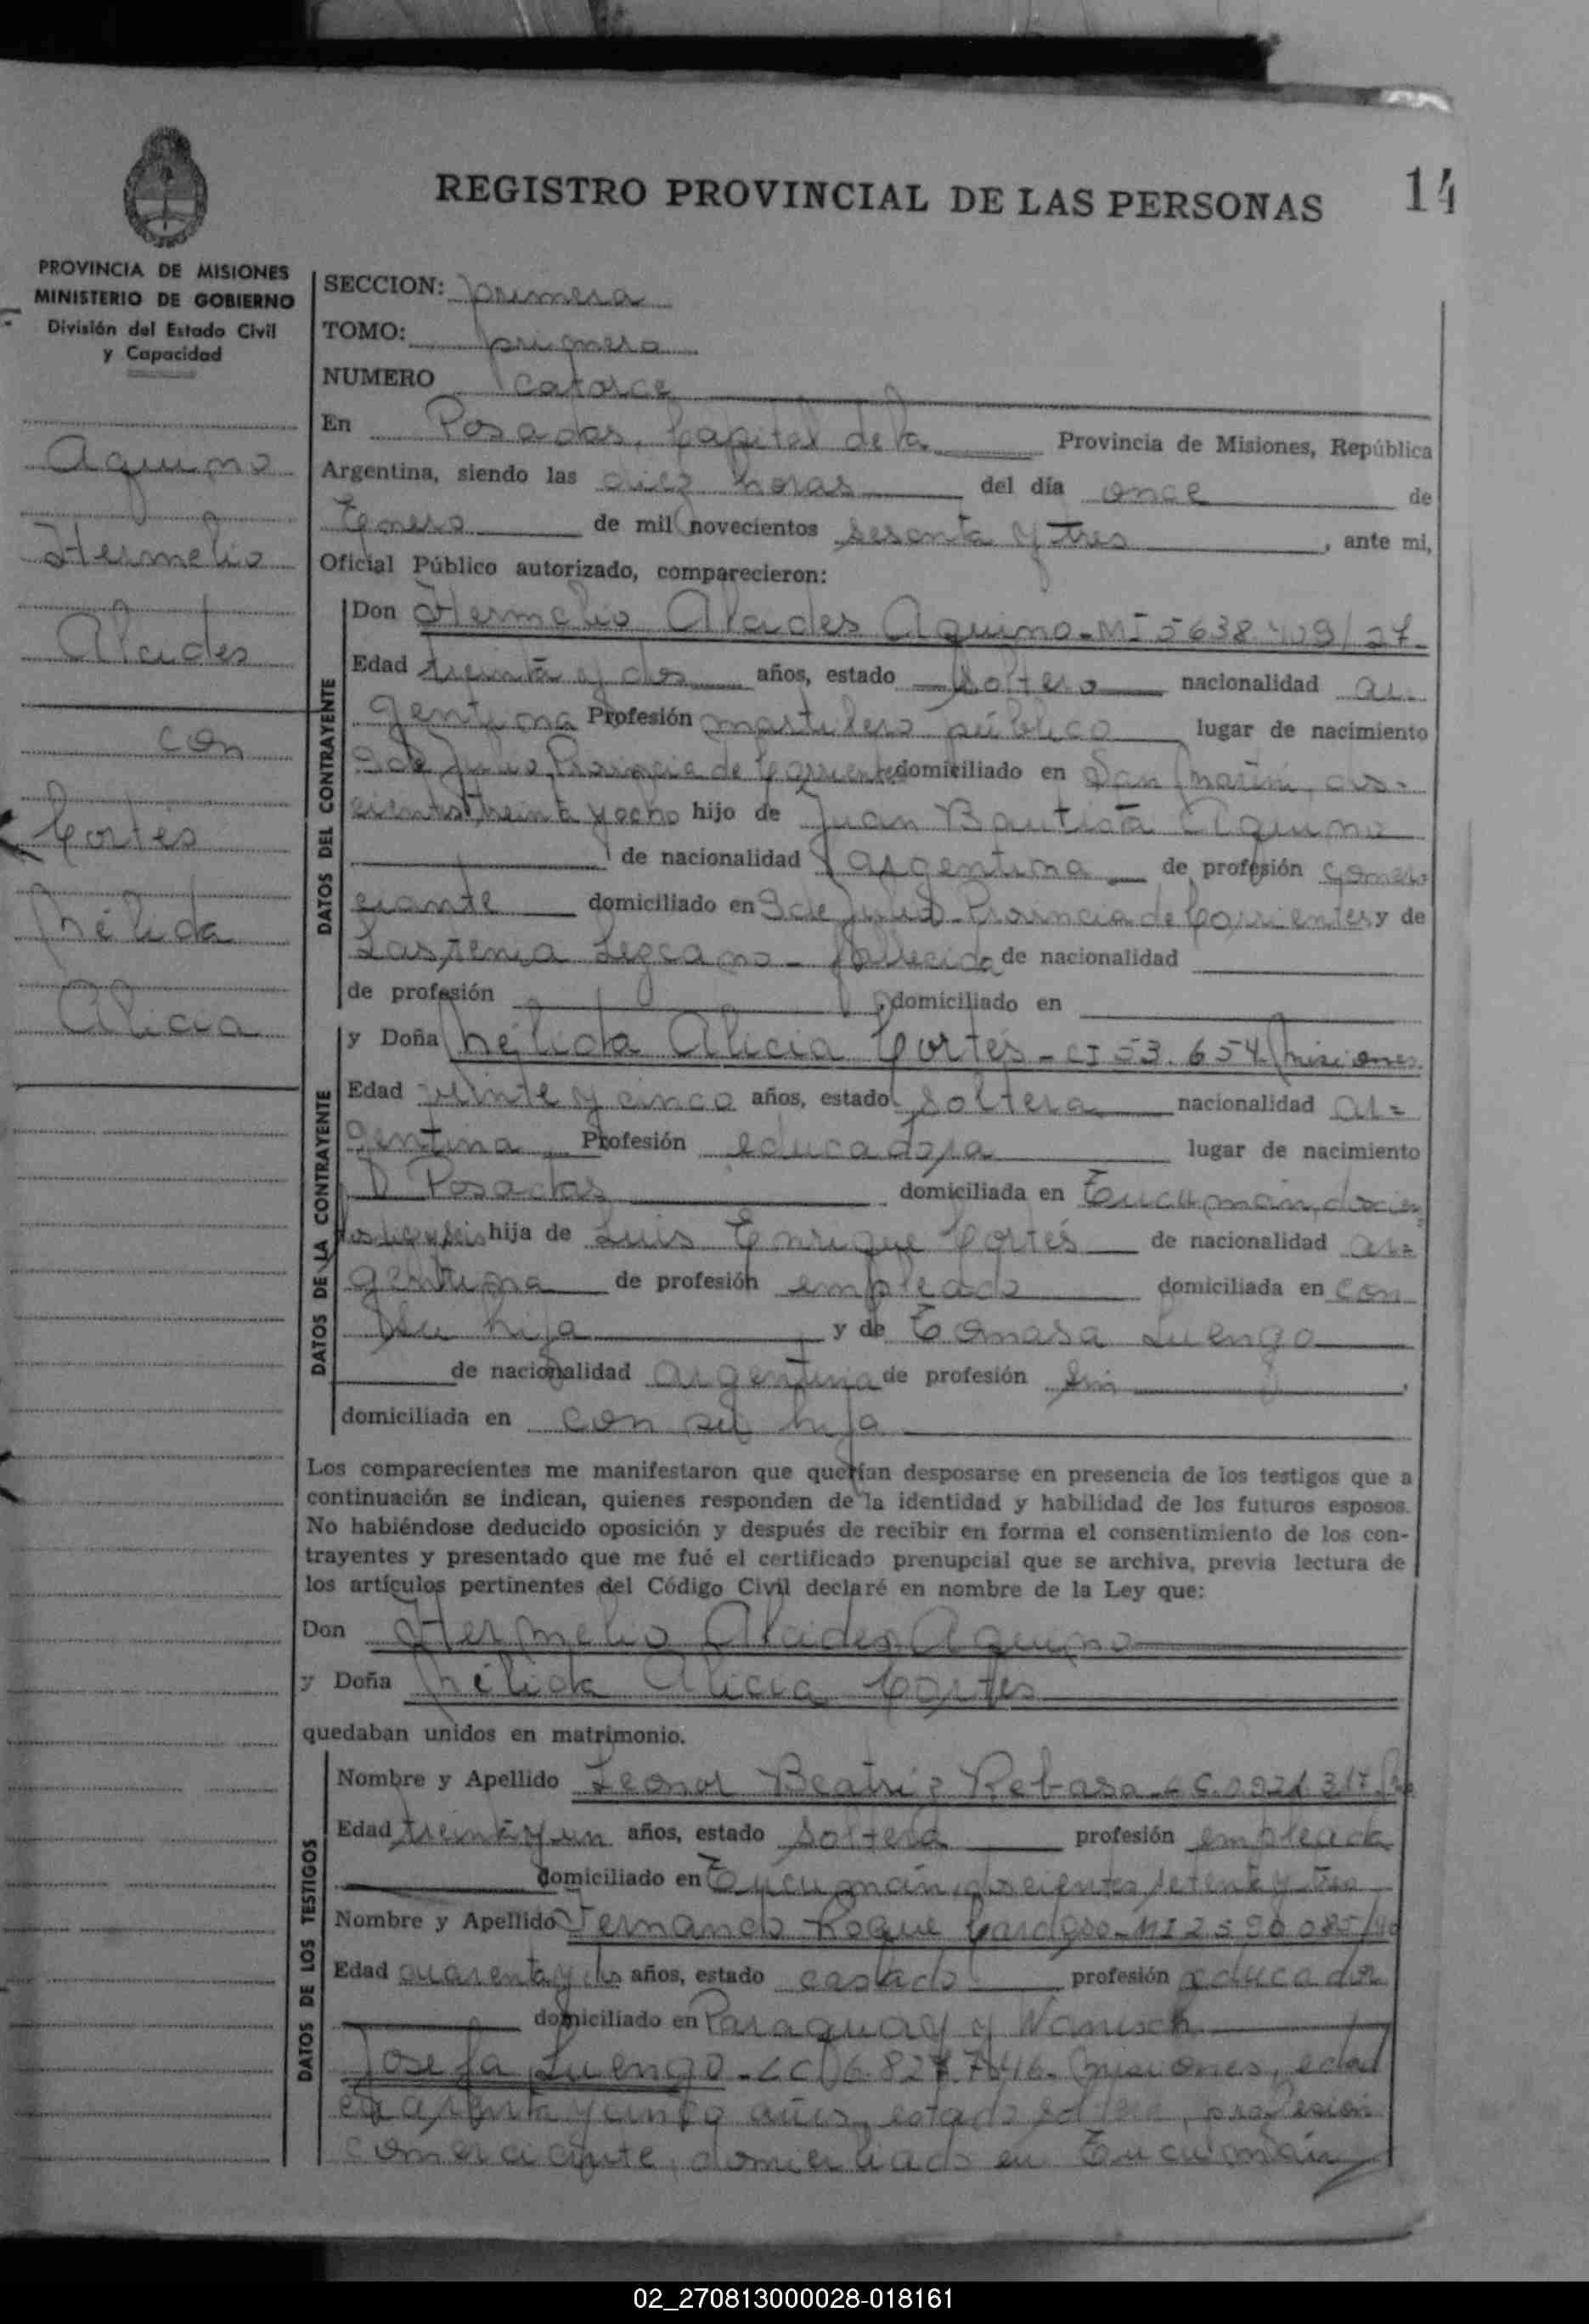 REGISTRO PROVINCIAL DE LAS PERSONAS
14
PROVINCIA DE MISIONES
MINISTERIO DE GOBIERNO
División del Estado Civil
y Capacidad
Aquino
Hermelio
Alcides
con
Cortés
Nélida
Alicia
SECCION: primera
TOMO: primero
NUMERO catorce
En Posadas, Capital de la Provincia de Misiones, República
Argentina, siendo las diez horas del día once de
Enero de mil novecientos sesenta y tres, ante mi,
Oficial Público autorizado, comparecieron:
DATOS DEL CONTRAYENTE
Don Hermelio Alcides Aquino - MI 5638 /27-
Edad treinta y dos años, estado soltero nacionalidad ar-
gentina Profesión martillero público lugar de nacimiento
9 de Julio, Provincia de Corrientes domiciliado en San Martín, dos-
cientos treinta y ocho hijo de Juan Bautista Aquino
de nacionalidad argentina de profesión comer-
ciante domiciliado en 9 de Julio - Provincia de Corrientes y de
Lastenia Lezcano - fallecida de nacionalidad
de profesión , domiciliado en
DATOS DE LA CONTRAYENTE
y Doña Nélida Alicia Cortés - CI 53.654. Misiones
Edad veinte y cinco años, estado soltera nacionalidad ar=
gentina Profesión educadora lugar de nacimiento
Posadas domiciliada en Tucumán, doscien
tos hija de Luis Enrique Cortés de nacionalidad ar=
gentina de profesión empleado domiciliada en con
su hija y de Tomasa Luengo
de nacionalidad argentina de profesión sin ,
domiciliada en con su hija
Los comparecientes me manifestaron que querían desposarse en presencia de los testigos que a
continuación se indican, quienes responden de la identidad y habilidad de los futuros esposos.
No habiéndose deducido oposición y después de recibir en forma el consentimiento de los con-
trayentes y presentado que me fué el certificado prenupcial que se archiva, previa lectura de
los artículos pertinentes del Código Civil declaré en nombre de la Ley que:
Don Hermelio Alcides Aquino
y Doña Nélida Alicia Cortés
quedaban unidos en matrimonio.
DATOS DE LOS TESTIGOS
Nombre y Apellido Leonor Beatriz
Edad treinta y un años, estado soltera profesión empleada
domiciliado en Tucumán, doscientos setenta y tres
Nombre y Apellido Fernando Roque Cardozo - MI 2590085/
Edad cuarenta y dos años, estado casado profesión educador
domiciliado en Paraguay y Wanisch
Josefa Luengo - LC Misiones, edad
cuarenta y cinco años, estado soltera, profesión
comerciante, domiciliado en Tucumán
02_270813000028-018161